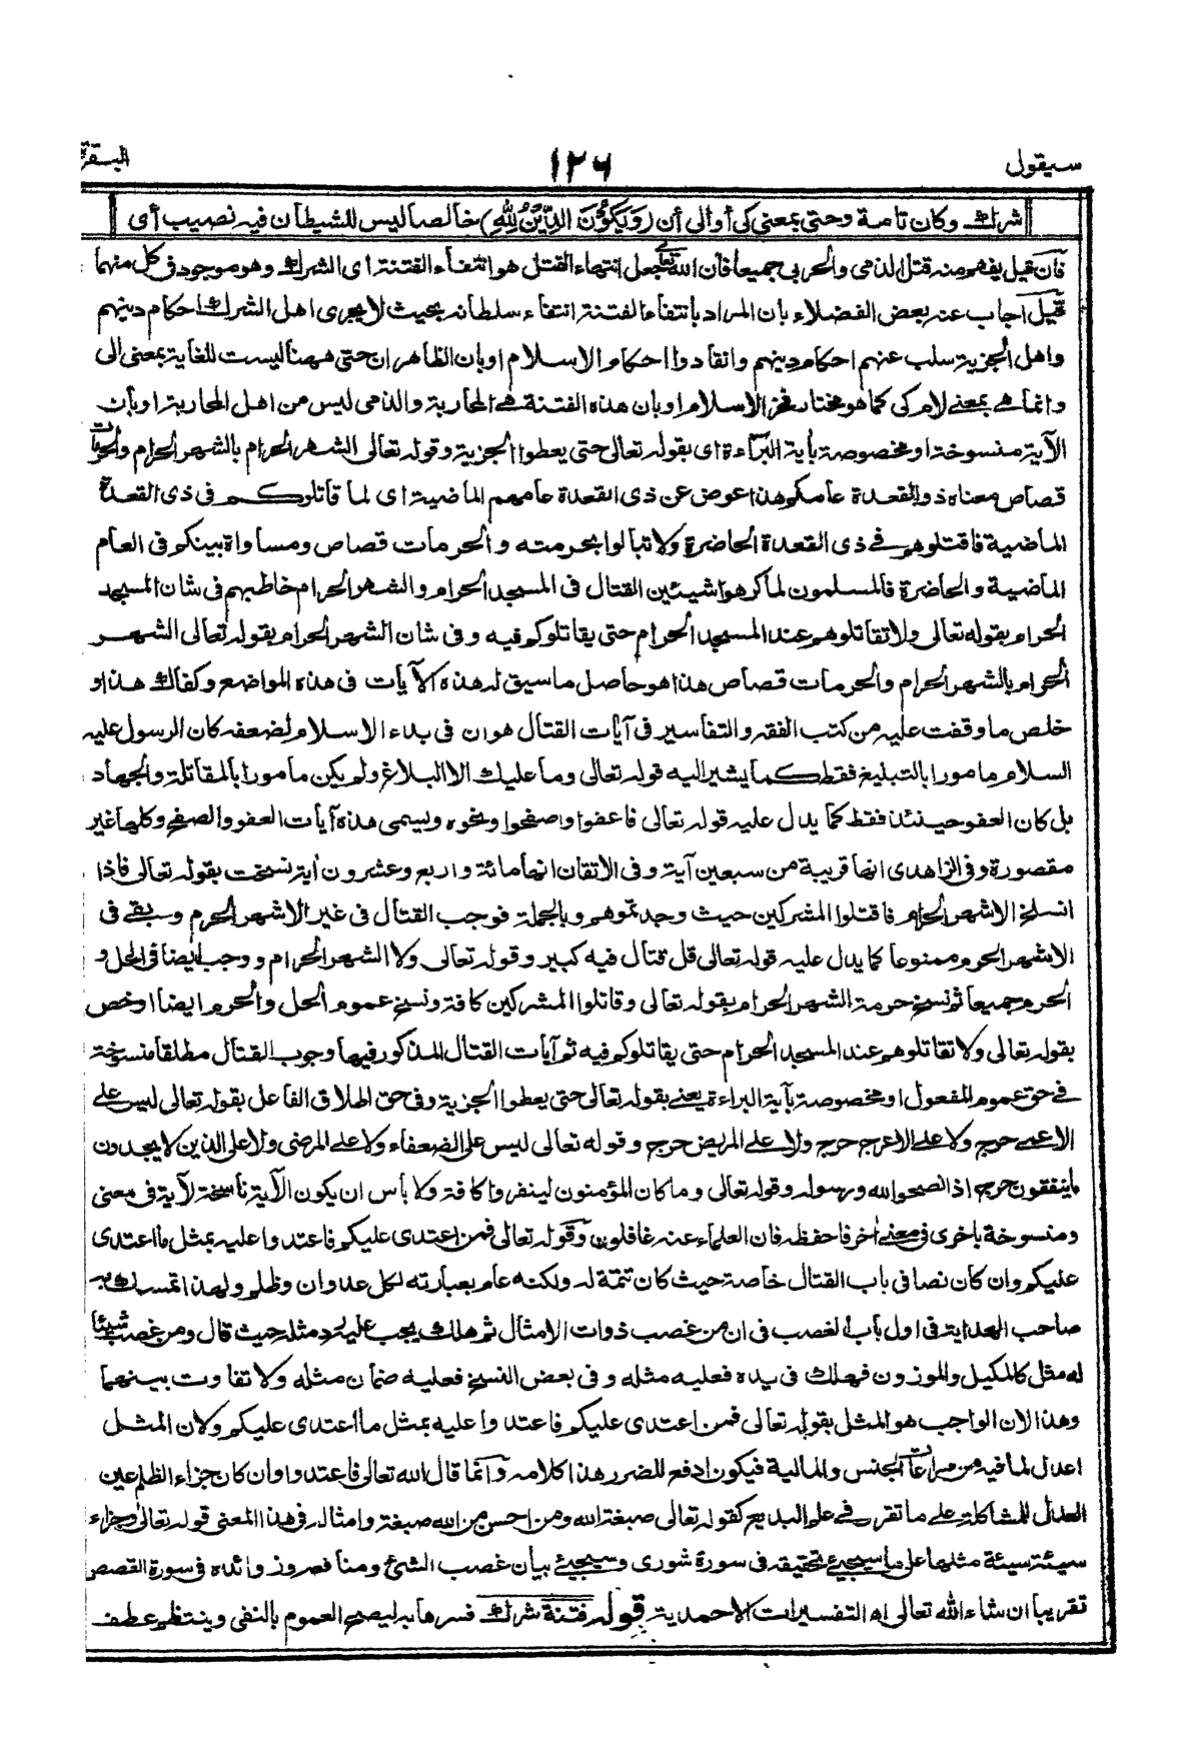 سيقول ١٢٦ البقرة
شرك وكان تامة وحتى بمعنى كى أو الى أن (وَيَكُوْنَ الدِّيْنُ لِلّٰهِ) خالصا ليس للشيطان فيه نصيب أى
فان قيل يفهم منه قتل الذمى والحربى جميعا فان الله تعالى جعل انتهاء القتل هو انتفاء الفتنة اى الشرك وهو موجود فى كل منهما
قيل اجاب عنه بعض الفضلاء بان المراد بانتفاء الفتنة انتفاء سلطانه بحيث لا يجرى اهل الشرك احكام دينهم
واهل الجزية سلب عنهم احكام دينهم وانقادوا احكام الاسلام او بان الظاهر ان حتى ههنا ليست للغاية بمعنى الى
وانما هى بمعنى لام كى كما هو مختار فخر الاسلام او بان هذه الفتنة هى المحاربة والذمى ليس من اهل المحاربة او بان
الآية منسوخة او مخصوصة بأية البراءة اى بقوله تعالى حتى يعطوا الجزية وقوله تعالى الشهر الحرام بالشهر الحرام والحرمات
قصاص معناه ذو القعدة عامكم هذا عوض عن ذى القعدة عامهم الماضية اى لما قاتلوكم فى ذى القعدة
الماضية فاقتلوهم فى ذى القعدة الحاضرة ولا تبالوا بحرمته والحرمات قصاص ومساواة بينكم فى العام
الماضية والحاضرة فالمسلمون لما كرهوا شيئين القتال فى المسجد الحرام والشهر الحرام خاطبهم فى شان المسجد
الحرام بقوله تعالى ولا تقاتلوهم عند المسجد الحرام حتى يقاتلوكم فيه وفى شان الشهر الحرام بقوله تعالى الشهر
الحرام بالشهر الحرام والحرمات قصاص هذا هو حاصل ما سيق له هذه الآيات فى هذه المواضع وكفاك هذا و
خلص ما وقفت عليه من كتب الفقه والتفاسير فى آيات القتال هو ان فى بدء الاسلام لضعفه كان الرسول عليه
السلام مامورا بالتبليغ فقط كما يشير اليه قوله تعالى وما عليك الا البلاغ ولم يكن مامورا بالمقاتلة والجهاد
بل كان العفو حينئذ فقط كما يدل عليه قوله تعالى فاعفوا واصفحوا ونحوه ويسمى هذه آيات العفو والصفح وكلها غير
مقصورة وفى الزاهدى انها قريبة من سبعين آية وفى الاتقان انها مائة واربع وعشرون أية نسخت بقوله تعالى فاذا
انسلخ الاشهر الحرام فاقتلوا المشركين حيث وجدتموهم وبالجملة فوجب القتال فى غير الاشهر الحرم وبقى فى
الاشهر الحرم ممنوعا كما يدل عليه قوله تعالى قل قتال فيه كبير وقوله تعالى ولا الشهر الحرام ووجب ايضا فى الحل و
الحرم جميعا ثم نسخ حرمة الشهر الحرام بقوله تعالى وقاتلوا المشركين كافة ونسخ عموم الحل والحرم ايضا او خص
بقوله تعالى ولا تقاتلوهم عند المسجد الحرام حتى يقاتلوكم فيه ثم آيات القتال المذكور فيها وجوب القتال مطلقا منسوخة
فى حق عموم المفعول او مخصوصة بآية البراءة يعنى بقوله تعالى حتى يعطوا الجزية وفى حق اطلاق الفاعل بقوله تعالى ليس على
الاعمى حرج ولا على الاعرج حرج ولا على المريض حرج وقوله تعالى ليس على الضعفاء ولا على المرضى ولا على الذين لا يجدون
ما ينفقون حرج اذا نصحوا لله ورسوله وقوله تعالى وما كان المؤمنون لينفروا كافة ولا بأس ان يكون الآية ناسخة لآية فى معنى
ومنسوخة باخرى فى معنى أخر فاحفظه فان العلماء عنه غافلون وقوله تعالى فمن اعتدى عليكم فاعتدوا عليه بمثل ما اعتدى
عليكم وان كان نصا فى باب القتال خاصة حيث كان تتمة له ولكنه عام بعبارته لكل عدوان وظلم ولهذا تمسك به
صاحب الهداية فى اول باب الغصب فى ان من غصب ذوات الامثال ثم هلك يجب عليه رد مثله حيث قال ومن غصب شيئا
له مثل كالمكيل والموزون فهلك فى يده فعليه مثله وفى بعض النسخ فعليه ضمان مثله ولا تفاوت بينهما
وهذا الان الواجب هو المثل بقوله تعالى فمن اعتدى عليكم فاعتدوا عليه بمثل ما اعتدى عليكم ولان المثل
اعدل لما فيه من مراعات الجنس والمالية فيكون ادفع للضرر هذا كلامه وانما قال الله تعالى فاعتدوا وان كان جزاء الظلم عين
العدل للمشاكلة على ما تقرر فى علم البديع كقوله تعالى صبغة الله ومن احسن من الله صبغة وامثاله فى هذا المعنى قوله تعالى وجزاء
سيئة سيئة مثلها على ما سيجئ تحقيقه فى سورة شورى وسيجئ بيان غصب الشئ ومنافعه وزوائده فى سورة القصص
تقريبا ان شاء الله تعالى اه التفسيرات الاحمدية قوله فتنة شرك فسرها به ليصح العموم بالنفى وينتظم عطف